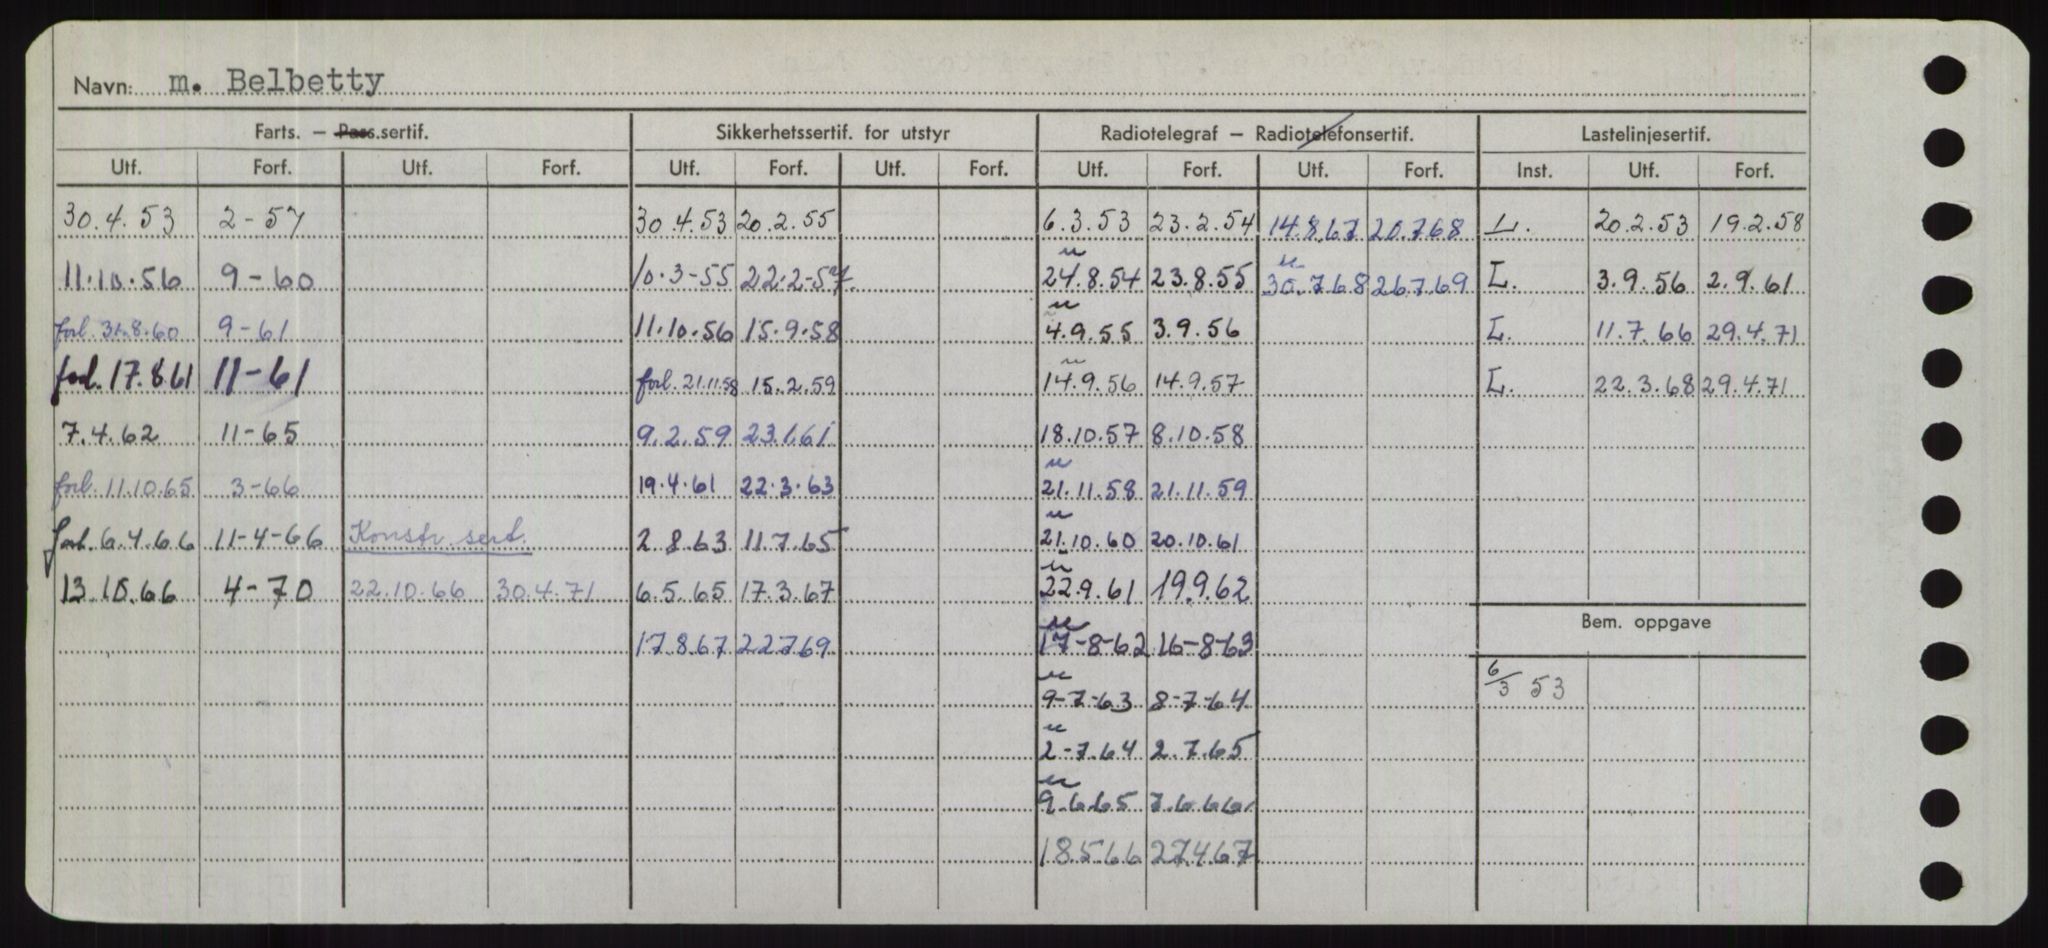 Navn: m. Belbetty
Farts. – Pass.sertif. Sikkerhetssertif. for utstyr Radiotelegraf – Radiotelefonsertif. Lastelinjesertif.
Utf. Forf. Utf. Forf. Utf. Forf. Utf. Forf. Utf. Forf. Utf. Forf. Inst. Utf. Forf.
30.4.53 2-57 30.4.53 20.2.55 6.3.53 23.2.54 14.8.67 20.7.68 L. 20.2.53 19.2.58
11.10.56 9-60 10.3-55 22.2-57 24.8.54 23.8.55 30.7.68 26.7.69 L. 3.9.56 2.9.61
forl. 31.8.60 9-61 11.10.56 15.9.58 4.9.55 3.9.56 L. 11.7.66 29.4.71
forl. 17.8.61 11-61 forl. 21.11.58 15.2.59 14.9.56 14.9.57 L. 22.3.68 29.4.71
7.4.62 11-65 9.2.59 23.1.61 18.10.57 8.10.58
forl. 11.10.65 3-66 19.4.61 22.3.63 21.11.58 21.11.59
forl. 6.4.66 11-4-66 Konstr. sert. 2.8.63 11.7.65 21.10.60 20.10.61
13.10.66 4-70 22.10.66 30.4.71 6.5.65 17.3.67 22.9.61 19.9.62
17.8.67 22.7.69 17-8-62 16-8-63
Bem. oppgave
9-7-63 8-7-64 6/3 53
2-7.64 2.7.65
9.6.65 7.6.66
18.5.66 27.4.67